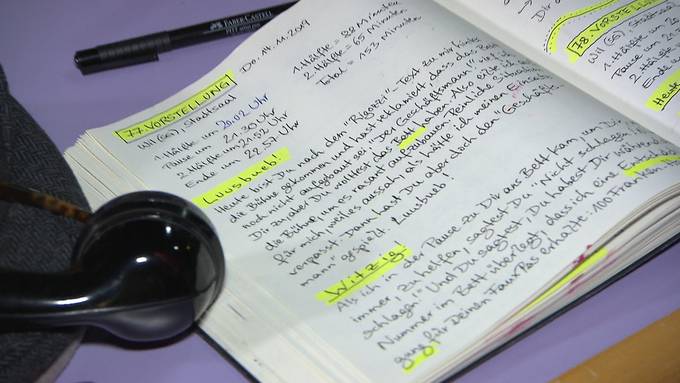 FABER-CASTELL
PITT artist pen
77. VORSTELLUNG
Do. 14.11.2019
Wil (SG), Stadtsaal
1. Hälfte = 88 Minuten
2. Hälfte = 65 Minuten
Total = 153 Minuten
1. Hälfte um 20.02 Uhr
Pause um 21.30 Uhr
2. Hälfte um 21.52 Uhr
Ende um 22.57 Uhr
Luusbueb!
Heute bist Du nach dem "Rigozzi"-Text zu mir hinter
die Bühne gekommen und hast reklamiert, dass das Bett
noch nicht aufgebaut sei. "Der Geschäftsmann"
Dir zu, aber Du wolltest das Bett haben. Also
die Bühne, um es rasant aufzubauen. Peinliche Situation
für mich, weil es aussah, als hätte ich meinen Einsatz
verpasst. Dann hast Du aber doch den "Geschäfts-
mann" gespielt. Luusbueb!
Witzig
Als ich in der Pause zu Dir ans Bett kam, um Dir
immer, zu helfen, sagtest Du: "Nicht schlagen,
schlagen!" Und Du sagtest, Du habest Dir während
Nummer im Bett überlegt, dass ich eine
gung für Deinen FauxPas erhalte: 100 Franken
78. VORSTELLUNG
Wil (SG), Stadtsaal
1. Hälfte um
Pause um
2. Hälfte
Ende um
Heute